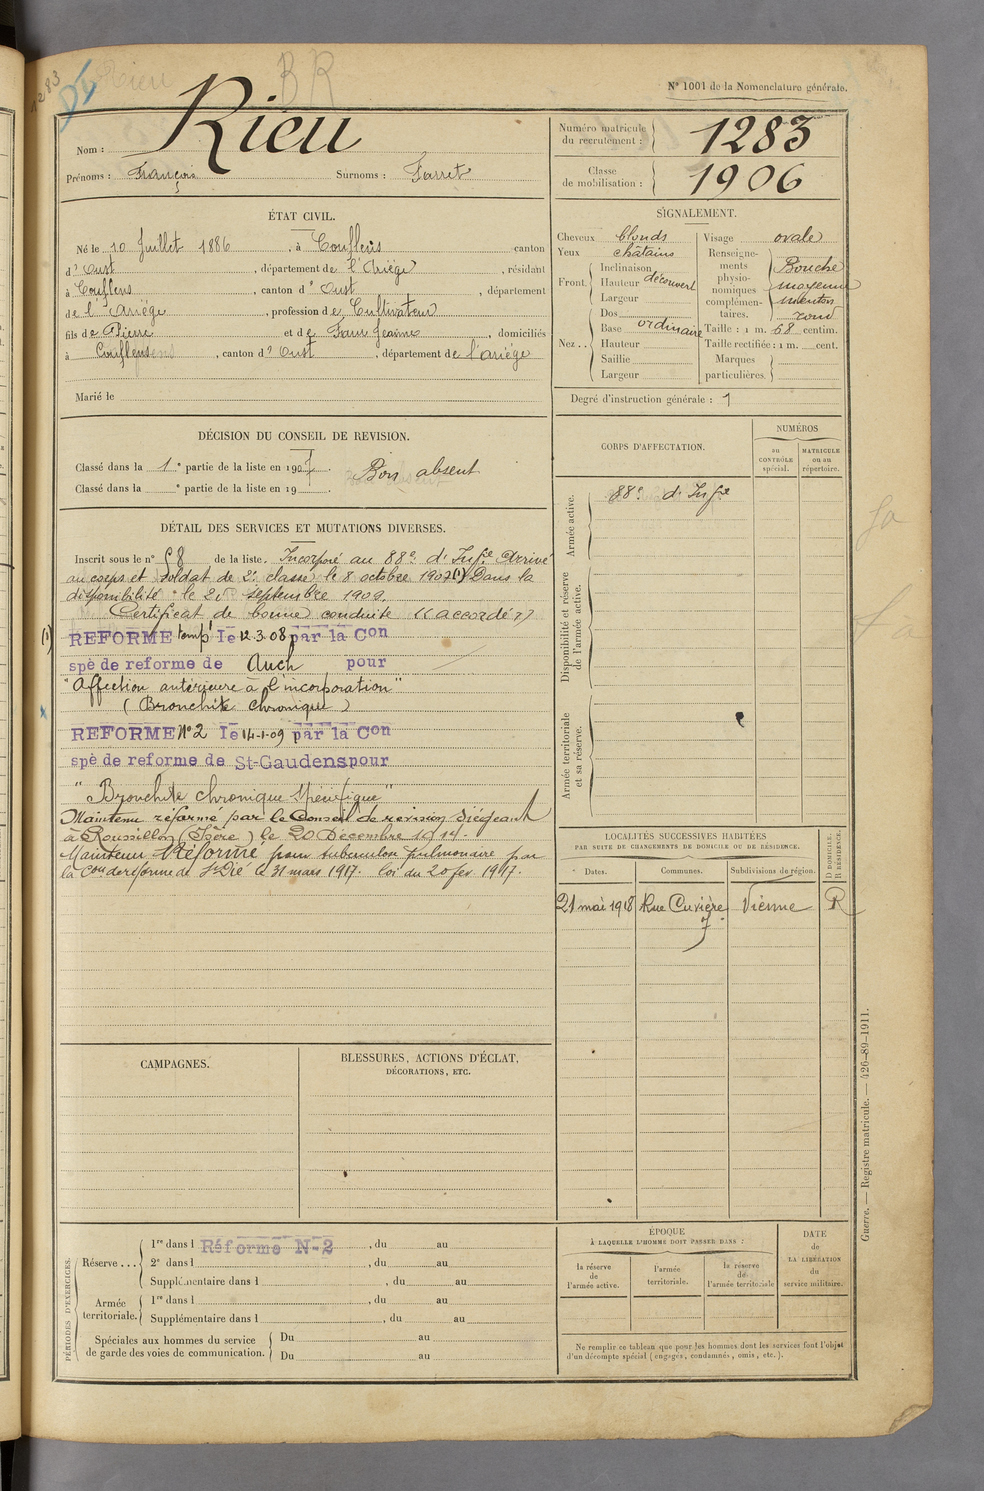 1283
Rieu
BR
N° 1001 de la Nomenclature générale.
Nom : Rieu
Prénoms : François Surnoms : Farret
Numéro matricule du recrutement : 1283
Classe de mobilisation : 1906
ÉTAT CIVIL.
Né le 10 Juillet 1886, à Couflens canton
d'Oust, département de l'Ariège, résidant
à Couflens, canton d'Oust, département
de l'Ariège, profession de Cultivateur
fils de Pierre et de Faur Jeanne, domiciliés
à Couflens, canton d'Oust, département de l'ariège
Marié le
SIGNALEMENT.
Cheveux blonds
Yeux châtains
Front. Inclinaison
Hauteur découvert
Largeur
Nez.. Dos
Base ordinaire
Hauteur
Saillie
Largeur
Visage ovale
Renseignements physionomiques complémentaires. Bouche moyenne menton rond
Taille : 1 m. 68 centim.
Taille rectifiée : 1 m. cent.
Marques particulières.
Degré d'instruction générale : 1
DÉCISION DU CONSEIL DE REVISION.
Classé dans la 1e partie de la liste en 1907 Bon absent
Classé dans la e partie de la liste en 19
DÉTAIL DES SERVICES ET MUTATIONS DIVERSES.
Inscrit sous le n° 58 de la liste. Incorporé au 88e d'Infie Arrivé
au corps et soldat de 2e classe le 8 octobre 1907 (1) Dans la
disponibilité le 25 septembre 1909.
Certificat de bonne conduite "accordé"
(1) REFORME temp' le 12.3.08 par la Con
spè de reforme de Auch pour
"Affection antérieure à l'incorporation"
(Bronchite chronique)
REFORME N°2 le 14-1-09 par la Con
spè de reforme de St-Gaudens pour
"Bronchite chronique spécifique"
Maintenu réformé par le Conseil de revision siégeant
à Roussillon (Isère) le 20 Décembre 1914.
Maintenu Réformé pour tuberculose pulmonaire par
la Con de réforme de St Dié le 31 mars 1917. loi du 20 fev. 1917.
CORPS D'AFFECTATION.
NUMÉROS
au CONTRÔLE spécial.
MATRICULE ou au répertoire.
Armée active.
88e d'Infie
Disponibilité et réserve de l'armée active.
Armée territoriale et sa réserve.
LOCALITÉS SUCCESSIVES HABITÉES
PAR SUITE DE CHANGEMENTS DE DOMICILE OU DE RÉSIDENCE.
Dates. Communes. Subdivisions de région. D DOMICILE. R RÉSIDENCE.
21 mai 1918 Rue Cuvière 7 Vienne R
CAMPAGNES.
BLESSURES, ACTIONS D'ÉCLAT,
DÉCORATIONS, ETC.
PÉRIODES D'EXERCICES.
Réserve... 1re dans l Réforme N-2, du au
2e dans l, du au
Supplémentaire dans l, du au
Armée territoriale. 1re dans l, du au
Supplémentaire dans l, du au
Spéciales aux hommes du service de garde des voies de communication. Du au
Du au
ÉPOQUE
À LAQUELLE L'HOMME DOIT PASSER DANS :
la réserve de l'armée active.
l'armée territoriale.
la réserve de l'armée territoriale
DATE de LA LIBÉRATION du service militaire.
Ne remplir ce tableau que pour les hommes dont les services font l'objet
d'un décompte spécial (engagés, condamnés, omis, etc.).
Guerre. — Registre matricule. — 426-89-1911.